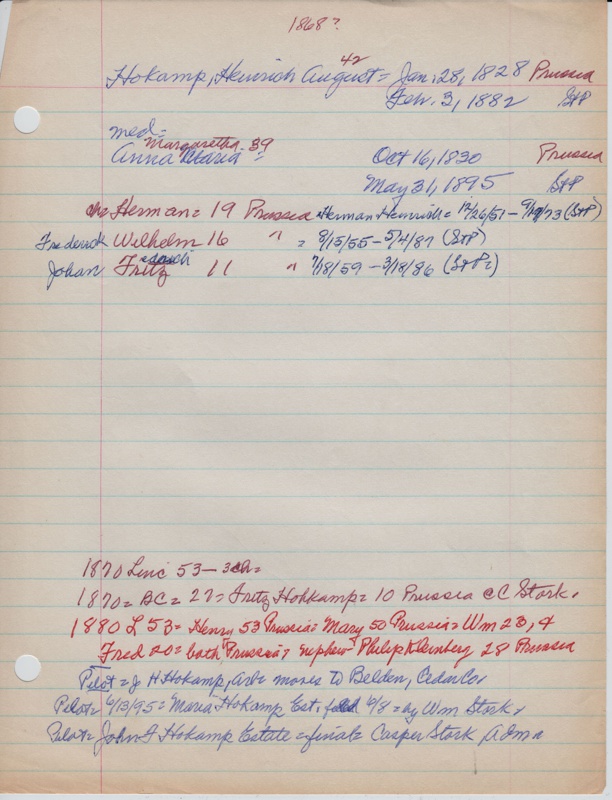 1868?
42
Hokamp, Heinrich August = Jan. 28, 1828 Prussia
Feb. 3, 1882 StP
med =
Margaretha 39
Anna Maria = Oct 16, 1830 Prussia
May 31, 1895 StP
ch = Herman = 19 Prussia = Herman Heinrich = 12/26/51 - 9/19/73 (StP)
Frederick Wilhelm 16 " = 8/15/55 - 5/4/87 (StP)
Johan Fritz 11 " 7/18/59 - 3/18/86 (StP)
1870 Linc 53 - 3ch =
1870 = BC = 27 = Fritz Hohkamp = 10 Prussia @C Stork.
1880 L 53 = Henry 53 Prussia = Mary 50 Prussia = Wm 23, &
Fred 20 = both Prussia, nephew Philip Kleinberg 28 Prussia
Pilot = J H Hokamp, moves to Belden, Cedar Co,
Pilot = 6/13/95 = Maria Hokamp Est. filed 6/8 = by Wm Stork,
Pilot = John F Hokamp Estate = final = Casper Stork Adm